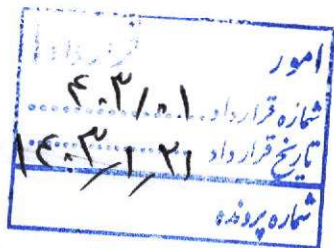 امور
شماره قرارداد ۴۰۳/۰۱
تاریخ قرارداد ۱۴۰۳/۱/۲۱
شماره پرونده